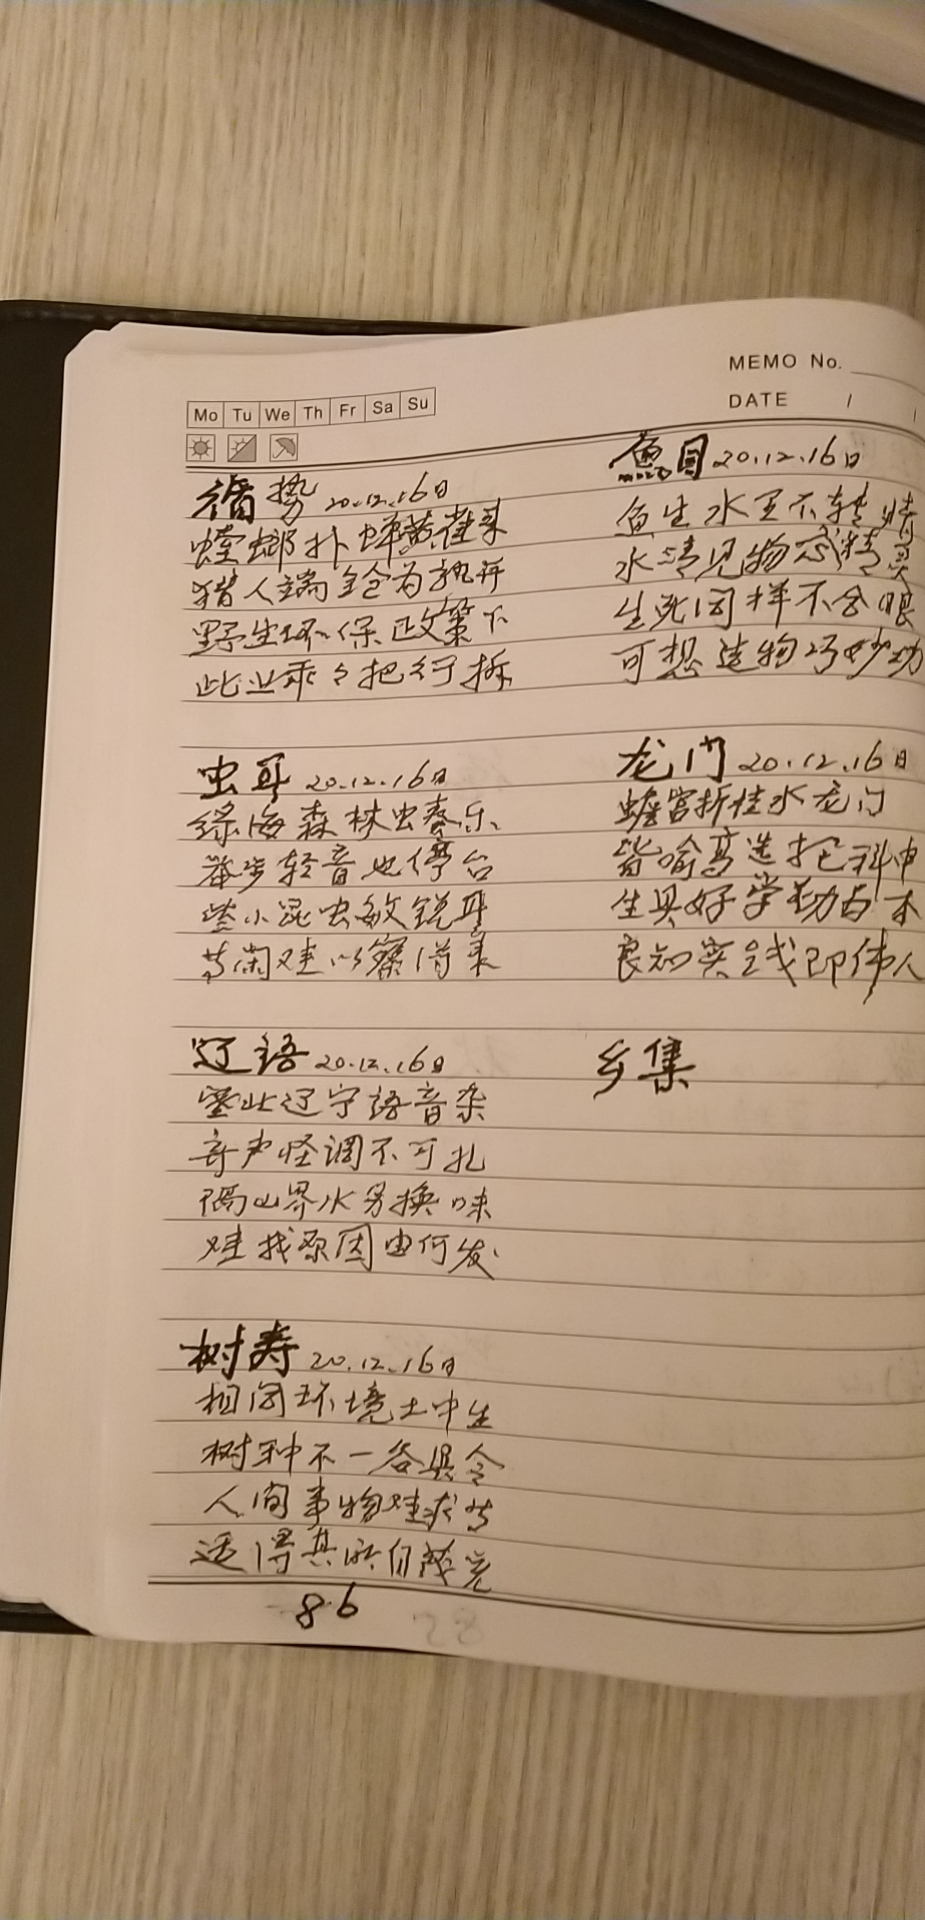 Mo Tu We Th Fr Sa Su
MEMO No.
DATE / /
循势 20.12.16日
螳螂扑蝉黄雀来
猎人端仓为
野生环保政策下
此业乖乖把行拆
虫耳 20.12.16日
绿海森林虫奏乐
举步轻音也停台
些小昆虫敏锐耳
难以察得来
辽语 20.12.16日
辽宁语音杂
奇声怪调不可扎
隔山界水另换味
难找原因由何发
树寿 20.12.16日
相同环境土中生
树种不一各具令
人间事物难求
适得其所自
86
28
鱼目 20.12.16日
鱼生水里不转睛
水清见物感精灵
生死同样不合眼
可想造物巧妙功
龙门 20.12.16日
蟾宫折桂水龙门
皆喻高选把科中
生具好学勤占本
良知实践即伟人
乡集